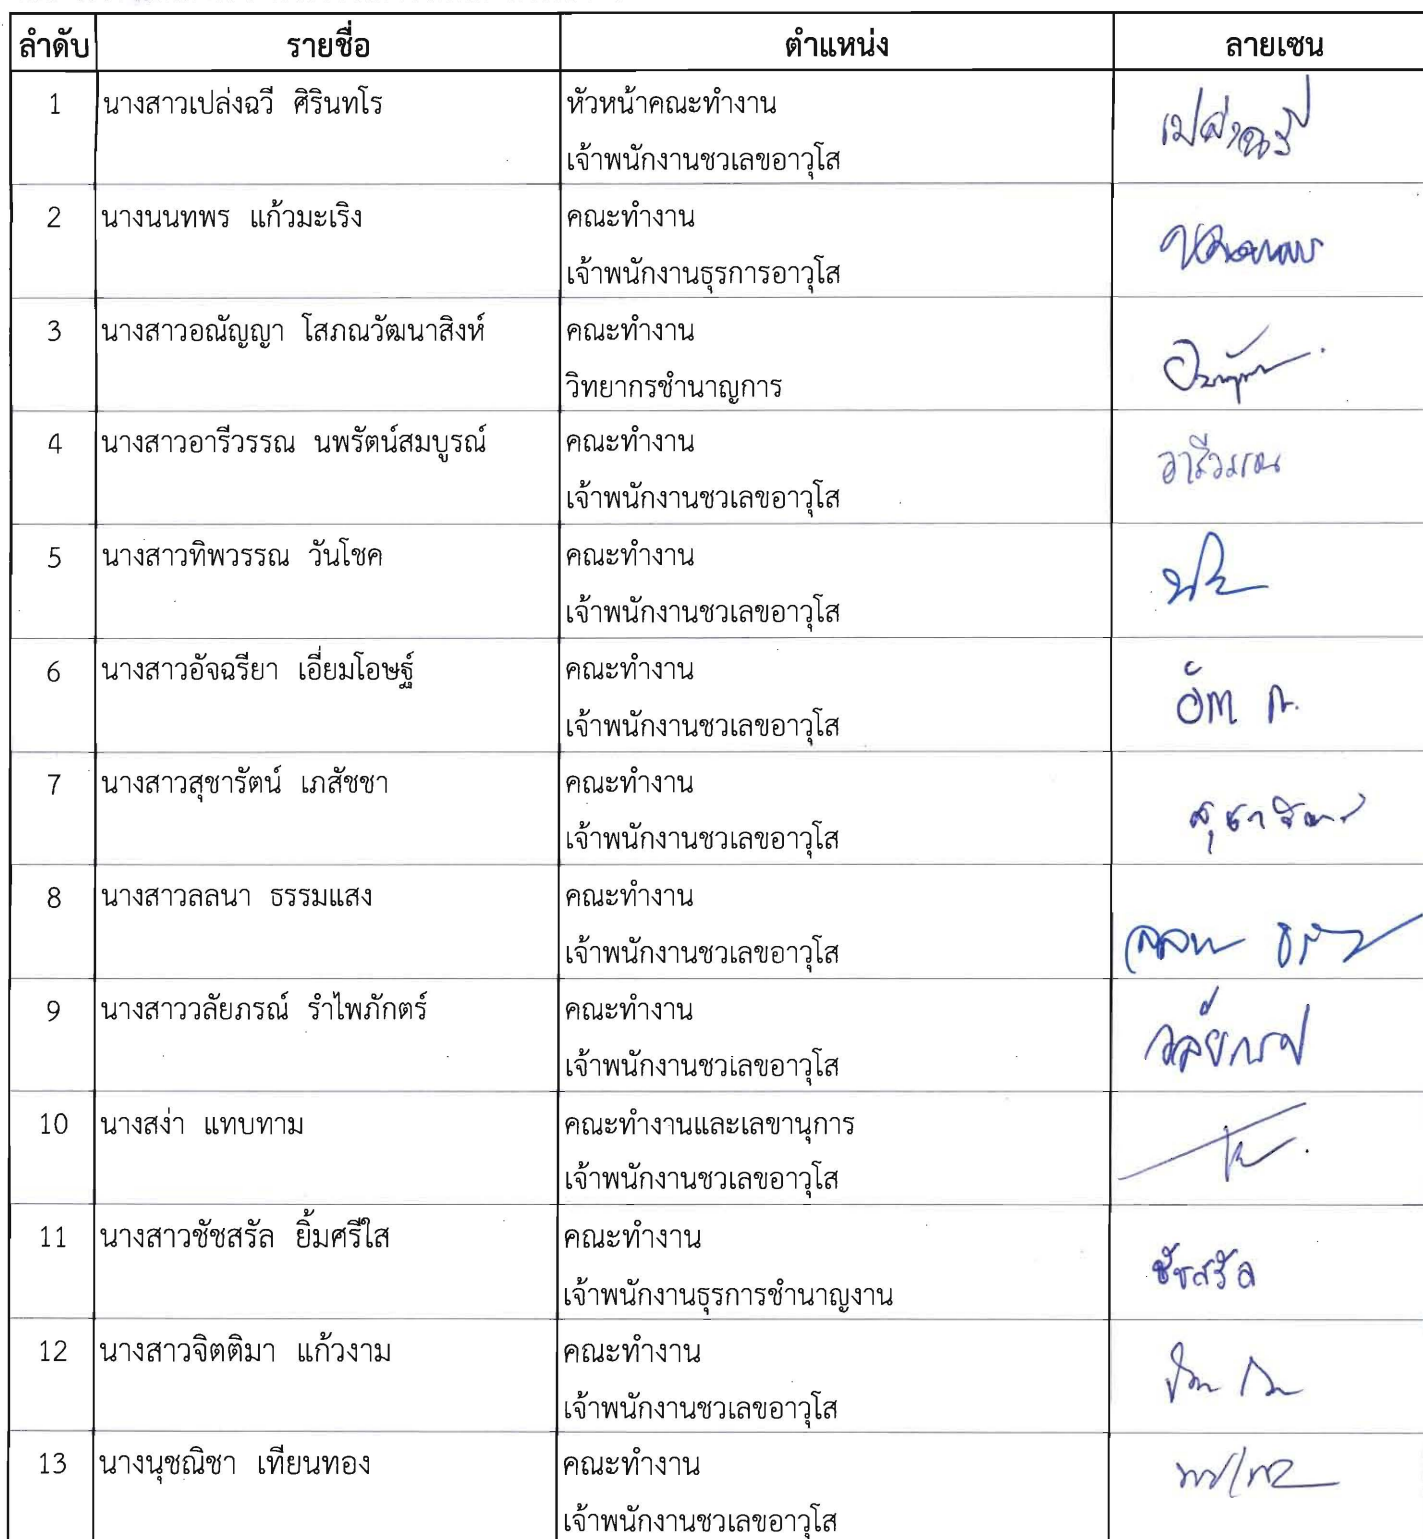 ลำดับ รายชื่อ ตำแหน่ง ลายเซน
1 นางสาวเปล่งฉวี ศิรินทโร หัวหน้าคณะทำงาน เปล่งฉวี
เจ้าพนักงานชวเลขอาวุโส
2 นางนนทพร แก้วมะเริง คณะทำงาน
เจ้าพนักงานธุรการอาวุโส
3 นางสาวอณัญญา โสภณวัฒนาสิงห์ คณะทำงาน
วิทยากรชำนาญการ
4 นางสาวอารีวรรณ นพรัตน์สมบูรณ์ คณะทำงาน อารีวรรณ
เจ้าพนักงานชวเลขอาวุโส
5 นางสาวทิพวรรณ วันโชค คณะทำงาน
เจ้าพนักงานชวเลขอาวุโส
6 นางสาวอัจฉรียา เอี่ยมโอษฐ์ คณะทำงาน
เจ้าพนักงานชวเลขอาวุโส
7 นางสาวสุชารัตน์ เภสัชชา คณะทำงาน
เจ้าพนักงานชวเลขอาวุโส
8 นางสาวลลนา ธรรมแสง คณะทำงาน
เจ้าพนักงานชวเลขอาวุโส
9 นางสาววลัยภรณ์ รำไพภักตร์ คณะทำงาน วลัยภรณ์
เจ้าพนักงานชวเลขอาวุโส
10 นางสง่า แทบทาม คณะทำงานและเลขานุการ
เจ้าพนักงานชวเลขอาวุโส
11 นางสาวชัชสรัล ยิ้มศรีใส คณะทำงาน ชัชสรัล
เจ้าพนักงานธุรการชำนาญงาน
12 นางสาวจิตติมา แก้วงาม คณะทำงาน
เจ้าพนักงานชวเลขอาวุโส
13 นางนุชณิชา เทียนทอง คณะทำงาน
เจ้าพนักงานชวเลขอาวุโส